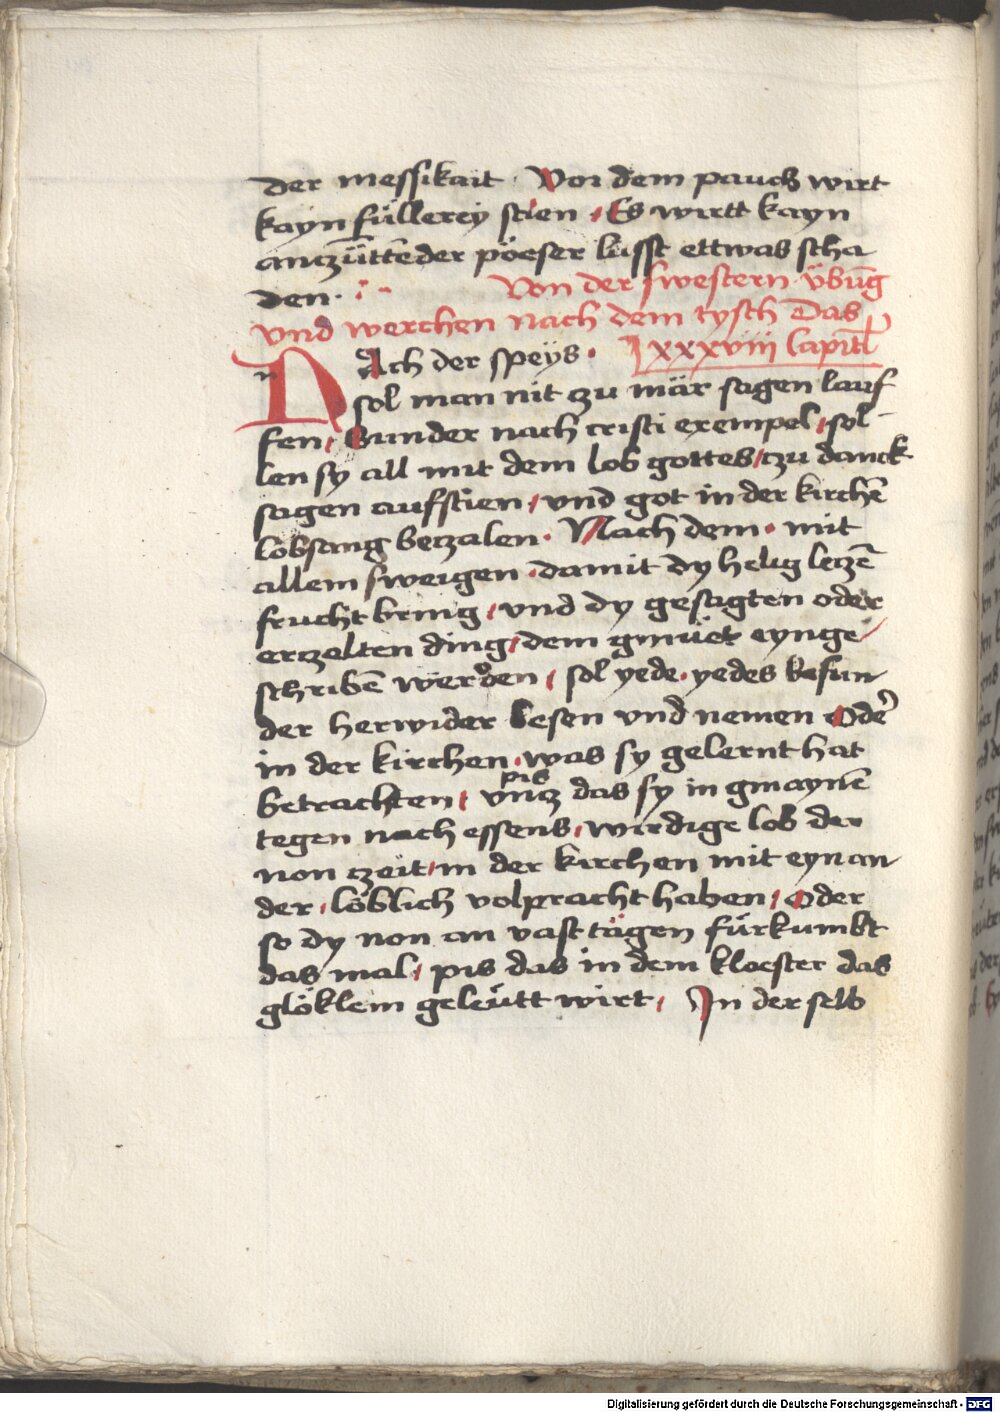 der messikait · Vor dem pauch wirt
kayn füllerey stien · Es wirtt kayn
anczüttēder pöeser lusst ettwas scha
den · Von der swestern übūg
vnd werchen nach dem tysch Das
lxxxviii Capitl
NAch der speys ·
sol man nit zu mär sagen lauf
fen / Sunder nach cristi exempel / sol-
len sy all mit dem lob gottes / czu danck
sagen aufstien / vnd got in der kirchē
lobsang beczalen · Nach dem · mit
allem sweigen · damit dy heilig leczē
frucht bring / vnd dy gesagten oder
erczelten ding / dem gmüet eynge/
schribē werden / sol yede · yedes besun
der herwider lesen vnd nemen Odeʳ
in der kirchen · was sy gelernt hat
betrachten / vncz pis das sy in gmaynē
tegen nach essens / wirdige lob der
non czeit / in der kirchen mit eynan
der / löblich volpracht haben / Oder
so dy non an vasttägen fürkumbt
das mal / pis das in dem kloester das
glöklein geleütt wirt / In der selb
Digitalisierung gefördert durch die Deutsche Forschungsgemeinschaft - DFG